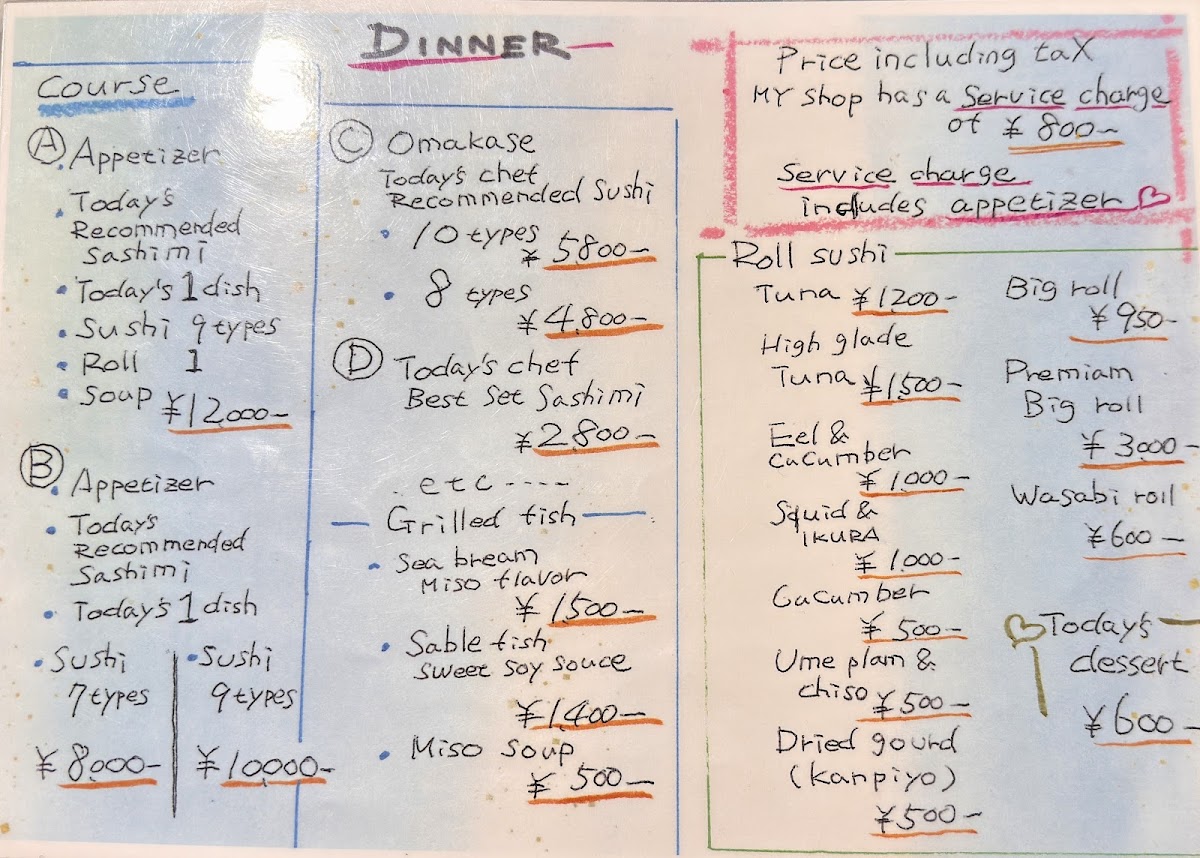 DINNER
Course
Ⓐ
• Appetizer
• Today's
Recommended
Sashimi
• Today's 1 dish
• Sushi 9 types
• Roll 1
• Soup ¥12,000-
Ⓑ
• Appetizer
• Today's
Recommended
Sashimi
• Today's 1 dish
• Sushi
7 types
¥8,000-
• Sushi
9 types
¥10,000-
Ⓒ Omakase
Today's chef
Recommended Sushi
• 10 types
¥5,800-
• 8 types
¥4,800-
Ⓓ Today's chef
Best Set Sashimi
¥2,800-
. etc ----
Grilled fish
• Sea bream
Miso flavor
¥1,500-
• Sable fish
Sweet soy souce
¥1,400-
• Miso Soup
¥500-
Price including tax
MY shop has a Service charge
of ¥800-
Service charge
includes appetizer ♡
Roll sushi
Tuna ¥1,200-
High glade
Tuna ¥1,500-
Eel &
Cucumber
¥1,000-
Squid &
IKURA
¥1,000-
Cucumber
¥500-
Ume plam &
chiso ¥500-
Dried gourd
(kanpiyo)
¥500-
Big roll
¥950-
Premiam
Big roll
¥3,000-
Wasabi roll
¥600-
♡Today's
dessert
¥600-